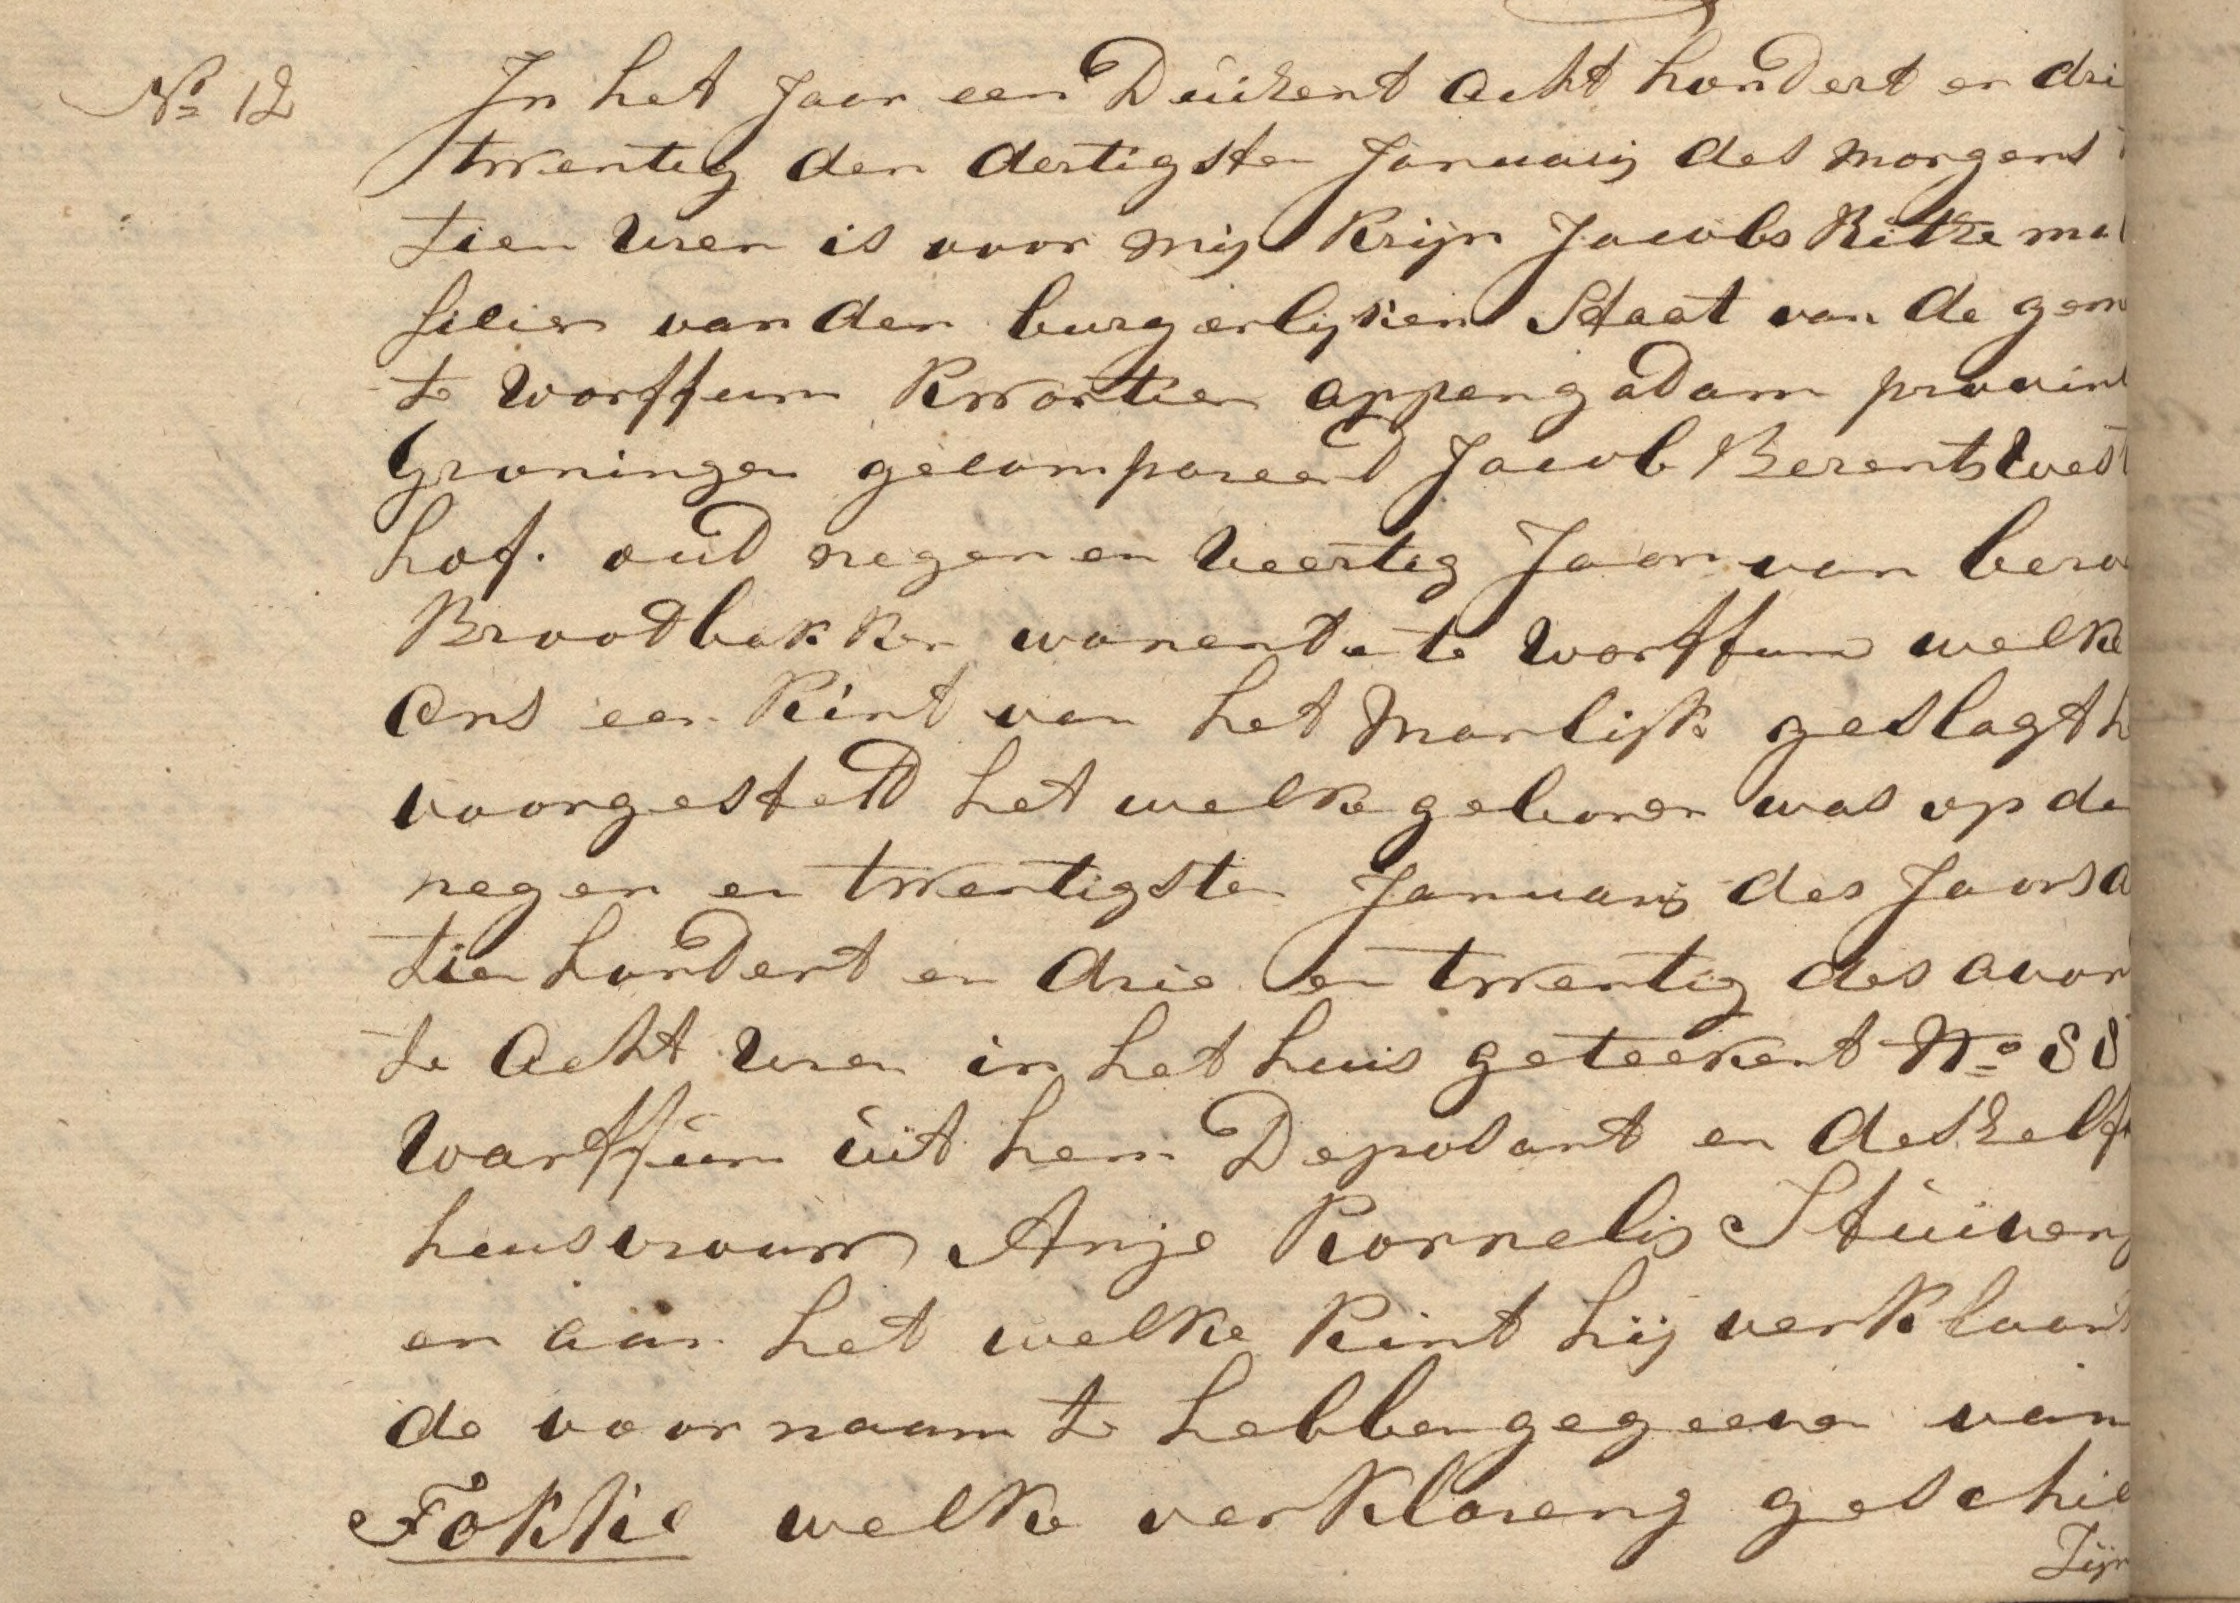 No 12
In het Jaar een Duizent acht hondert en dri
twentig den dertigsten Januarij des morgens
tien Uren is voor mij Krijn Jacobs Ritzema
ficier van den burgerlijken Staat van de gem
te Warffum Kwartier appengadam provin
Groningen gecompareerd Jacob Berents West
hof. oud negen en Veertig Jaar van bero
Broodbakker wonende te Warffum welke
ons een Kint van het Manlijk geslagt h
voorgesteld het welke geboren was op de
negen en twentigsten Januarij des Jaars a
tien hondert en drie en twentig des avon
te acht Uren in het huis geteekent No 88
Warffum uit hem Deposant en deszelf
huisvrouw Anje Kornelis Stuiven
en aan het welke Kint hij verklaar
de voornaam te hebben gegeeven van
Fokkie welke verklareng geschie
Zijn